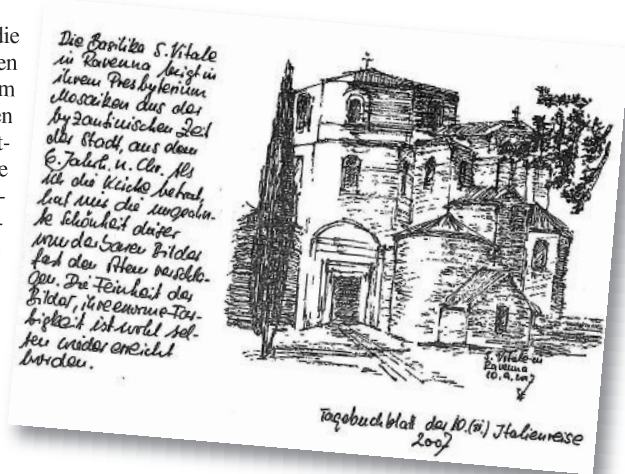 die
en
m
en
t-
e
-
-
Die Basilika S. Vitale
in Ravenna zeigt in
ihrem Presbyterium
Mosaiken aus der
byzantinischen Zeit
der Stadt, aus dem
6. Jahrh. n. Chr. Als
ich die Kirche betrat,
hat mir die ungeahn-
te Schönheit dieser
wunderbaren Bilder
fast den Atem verschla-
gen. Die Feinheit der
Bilder, ihre enorme Far-
bigkeit ist wohl sel-
ten wieder erreicht
worden.
S. Vitale in
Ravenna
Tagebuchblatt der 10.(!!) Italienreise
2007